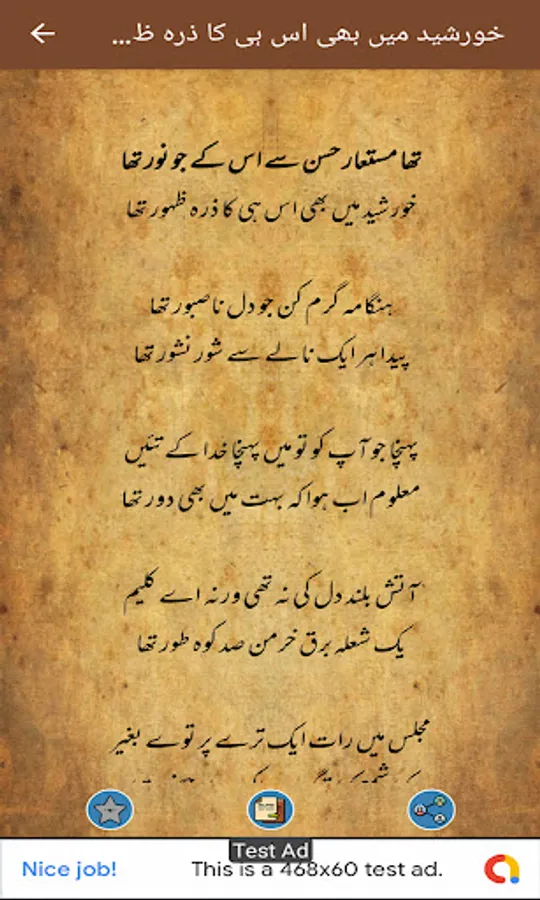 خورشید میں بھی اس ہی کا ذرہ ظ...
تھا مستعار حسن سے اس کے جو نور تھا
خورشید میں بھی اس ہی کا ذرہ ظہور تھا
ہنگامہ گرم کن جو دل ناصبور تھا
پیدا ہر ایک نالے سے شور نشور تھا
پہنچا جو آپ کو تو میں پہنچا خدا کے تئیں
معلوم اب ہوا کہ بہت میں بھی دور تھا
آتش بلند دل کی نہ تھی ورنہ اے کلیم
یک شعلہ برق خرمن صد کوہ طور تھا
مجلس میں رات ایک ترے پرتوے بغیر
Test Ad
Nice job!
This is a 468x60 test ad.